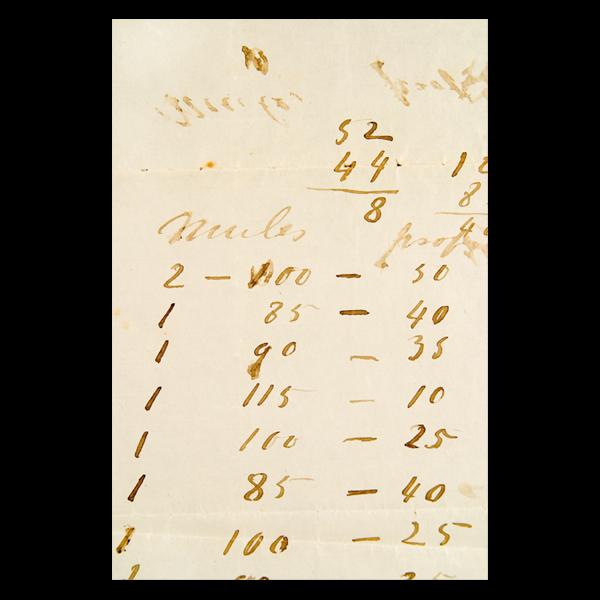 52
44 12
8 8
Mules
2 — 100 — 50
1 85 — 40
1 90 — 35
1 115 — 10
1 100 — 25
1 85 — 40
1 100 — 25